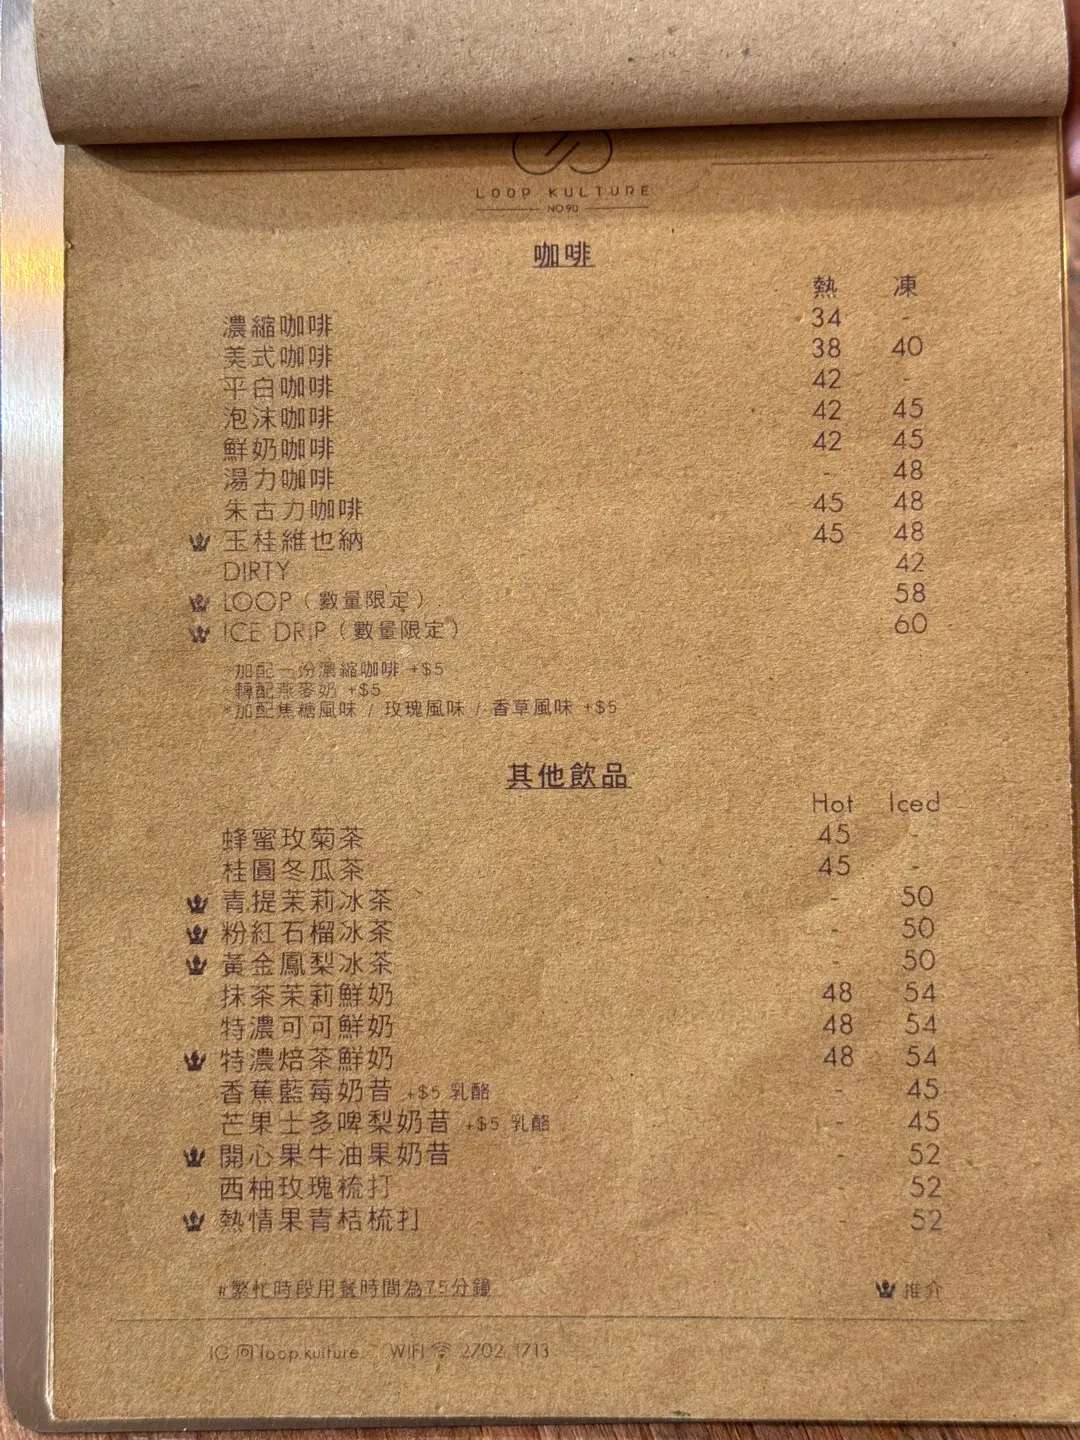 LOOP KULTURE
NO.90
咖啡
熱 凍
濃縮咖啡 34 -
美式咖啡 38 40
平白咖啡 42 -
泡沫咖啡 42 45
鮮奶咖啡 42 45
湯力咖啡 - 48
朱古力咖啡 45 48
玉桂維也納 45 48
DIRTY 42
LOOP（數量限定） 58
ICE DRIP（數量限定） 60
*加配一份濃縮咖啡 +$5
*轉配燕麥奶 +$5
*加配焦糖風味 / 玫瑰風味 / 香草風味 +$5
其他飲品
Hot Iced
蜂蜜玫菊茶 45 -
桂圓冬瓜茶 45 -
青提茉莉冰茶 - 50
粉紅石榴冰茶 - 50
黃金鳳梨冰茶 - 50
抹茶茉莉鮮奶 48 54
特濃可可鮮奶 48 54
特濃焙茶鮮奶 48 54
香蕉藍莓奶昔 +$5 乳酪 - 45
芒果士多啤梨奶昔 +$5 乳酪 - 45
開心果牛油果奶昔 - 52
西柚玫瑰梳打 - 52
熱情果青桔梳打 - 52
#繁忙時段用餐時間為75分鐘 推介
IG loop.kulture. WIFI 2702 1713